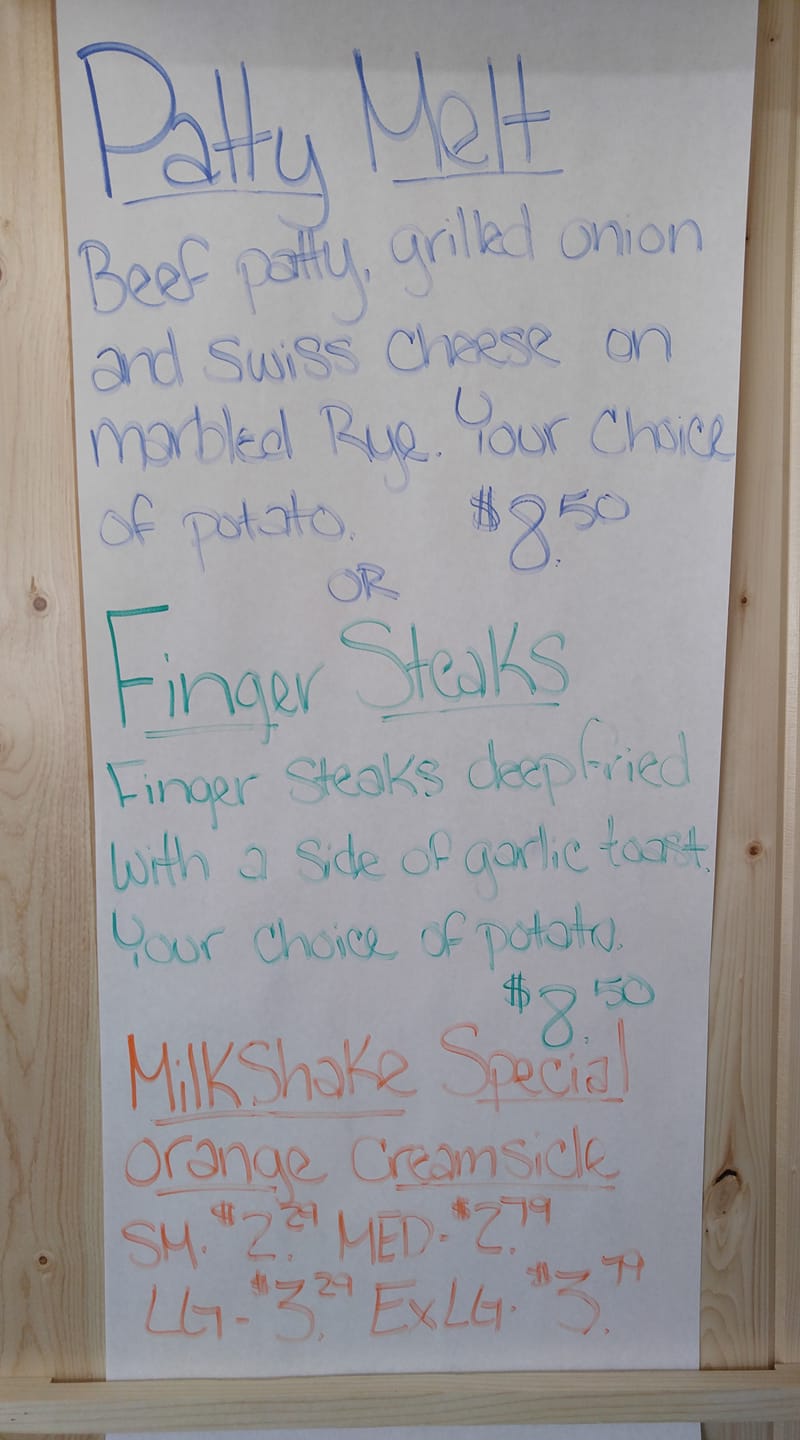 Patty Melt
Beef patty, grilled onion
and swiss cheese on
marbled Rye. Your choice
of potato. $8.50
OR
Finger Steaks
Finger Steaks deep fried
with a side of garlic toast.
Your choice of potato.
$8.50
MilkShake Special
Orange Creamsicle
SM. $2.29 MED- $2.79
LG- $3.29 ExLG. $3.79